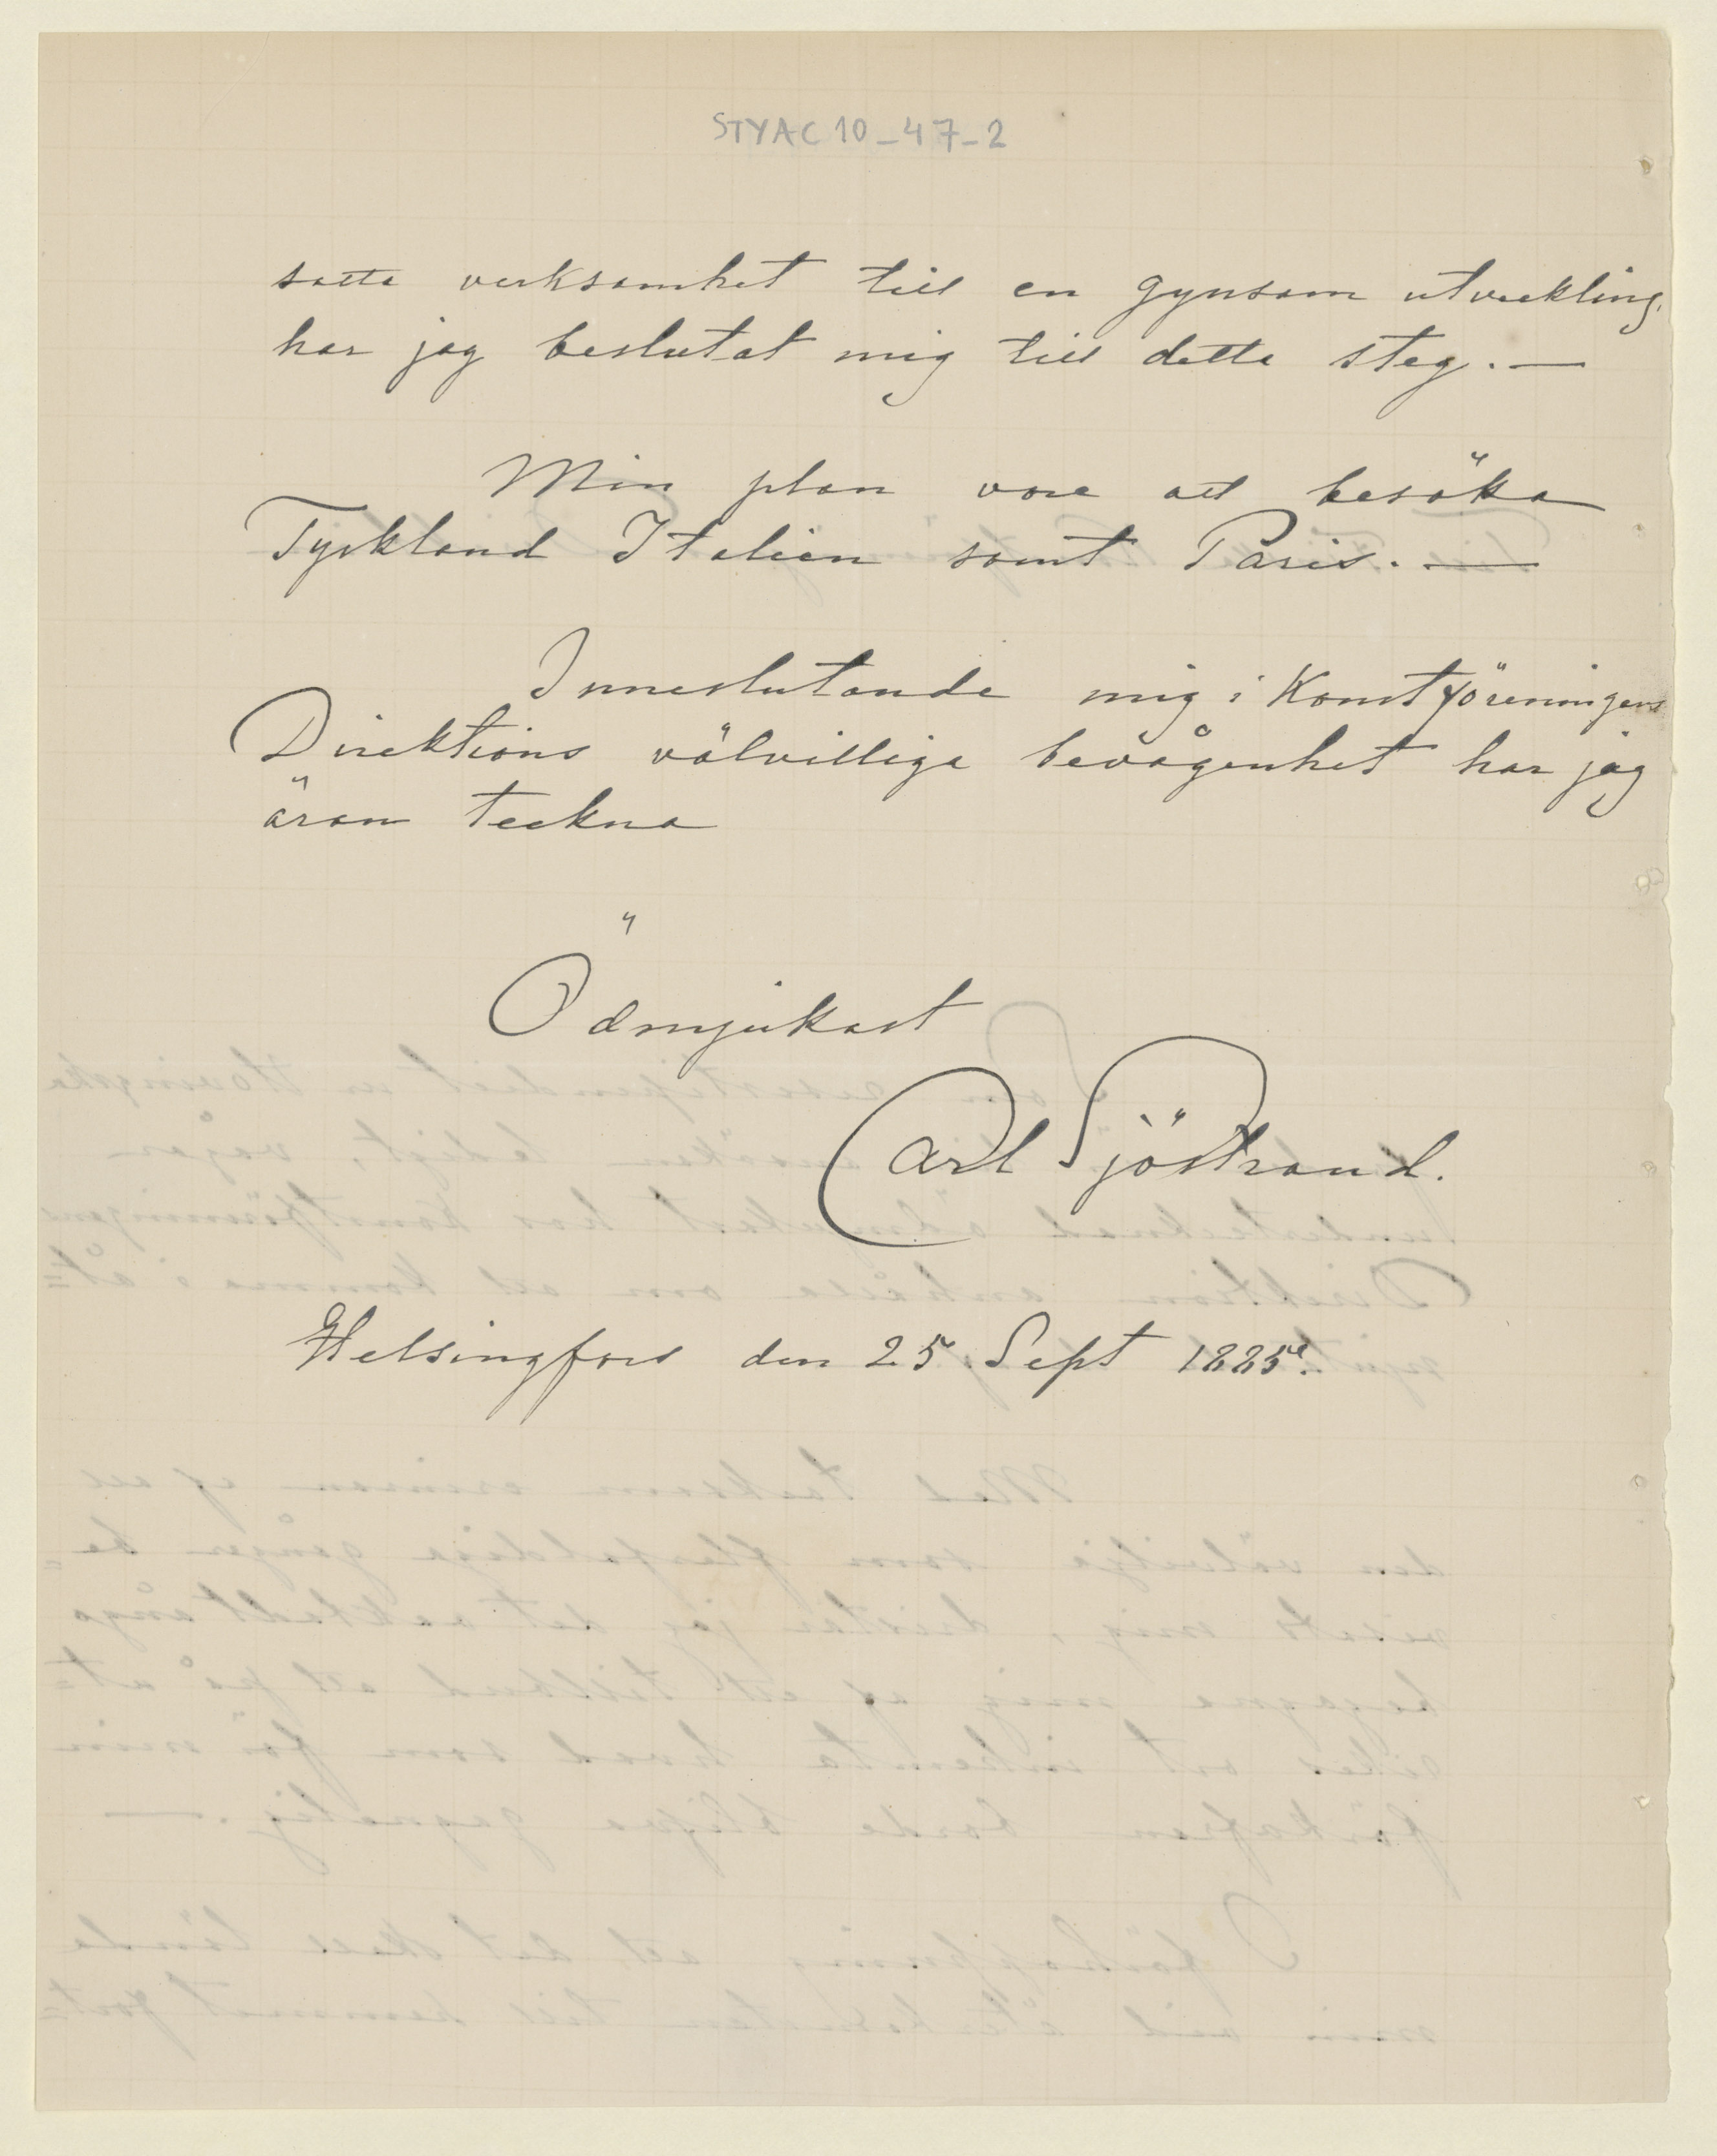 STYAC10_47_2
satta verksamhet till en gynsam utveckling,
har jag beslutat mig till detta steg. —
Min plan vore att besöka
Tyskland Italien samt Paris. —
Inneslutande mig i Konstföreningens
Direktions välvilliga bevågenhet har jag
äran teckna
Ödmjukast
Carl Sjöstrand.
Helsingfors den 25 Sept 1885.